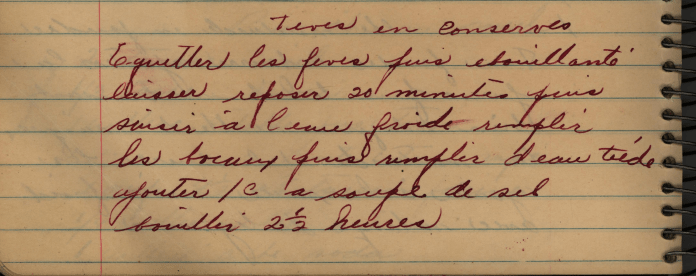 Feves en conserves
Equetter les feves puis ebouillanté
laisser reposer 20 minutes puis
saisir à l'eau froide remplir
les bocaux puis remplir d'eau tiéde
ajouter 1 c a soupe de sel
bouillir 2 1/2 heures